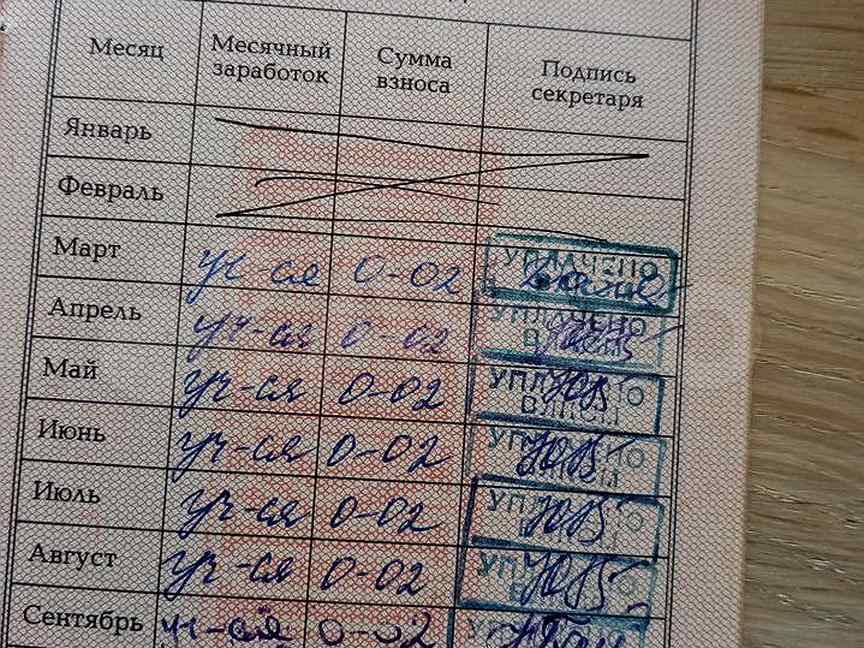 Месяц Месячный заработок Сумма взноса Подпись секретаря
Январь
Февраль
Март уч-ся 0-02 УПЛАЧЕНО
Апрель уч-ся 0-02 УПЛАЧЕНО ВЛКСМ
Май уч-ся 0-02 УПЛАЧЕНО ВЛКСМ
Июнь уч-ся 0-02
Июль уч-ся 0-02
Август уч-ся 0-02
Сентябрь уч-ся 0-02